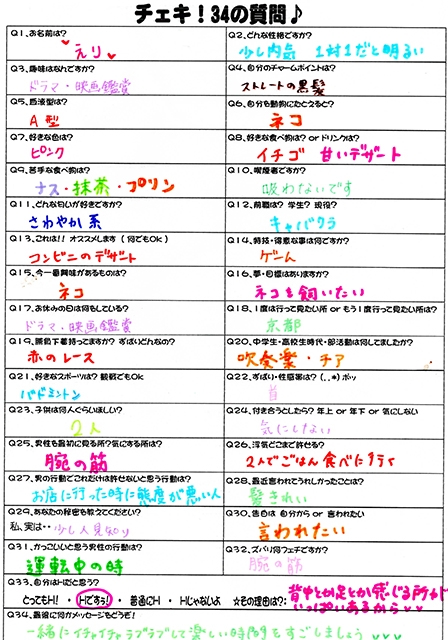 チェキ！34の質問♪
Q1、お名前は？
えり
Q2、どんな性格ですか？
少し内気 1対1だと明るい
Q3、趣味はなんですか？
ドラマ・映画鑑賞
Q4、自分のチャームポイントは？
ストレートの黒髪
Q5、血液型は？
A型
Q6、自分を動物にたとえると？
ネコ
Q7、好きな色は？
ピンク
Q8、好きな食べ物は？ or ドリンクは？
イチゴ 甘いデザート
Q9、苦手な食べ物は？
ナス・抹茶・プリン
Q10、喫煙者ですか？
吸わないです
Q11、どんな匂いが好きですか？
さわやか系
Q12、前職は？ 学生？ 現役？
キャバクラ
Q13、これは！！ オススメします（何でもOk）
コンビニのデザート
Q14、特技・得意な事は何ですか？
ゲーム
Q15、今一番興味があるものは？
ネコ
Q16、夢・目標はありますか？
ネコを飼いたい
Q17、お休みの日は何をしている？
ドラマ・映画鑑賞
Q18、1度は行って見たい所 or もう1度行って見たい所は？
京都
Q19、勝負下着持ってますか？ ずばりどんなの？
赤のレース
Q20、中学生・高校生時代・部活動は何してましたか？
吹奏楽・チア
Q21、好きなスポーツは？ 観戦でもOk
バドミントン
Q22、ずばり・性感帯は？（..*）ポッ
首
Q23、子供は何人ぐらいほしい？
2人
Q24、付き合うとしたら？ 年上 or 年下 or 気にしない
気にしない
Q25、男性を最初に見る所？気にする所は？
腕の筋
Q26、浮気どこまで許せる？
2人でごはん食べに行く
Q27、男の行動でこれだけは許せないと思う行動は？
お店に行った時に態度が悪い人
Q28、最近言われてうれしかったことは？
髪きれい
Q29、あなたの秘密を教えてください？
私、実は‥少し人見知り
Q30、告白は 自分から or 言われたい
言われたい
Q31、かっこいいと思う男性の行動は？
運転中の時
Q32、ズバリ何フェチですか？
腕の筋
Q33、自分はHだと思う？
とってもH！ ・ Hですぅ！ ・ 普通にH ・ Hじゃないよ ☆その理由は？：
背中とか足とか感じる所が
いっぱいあるから
Q34、最後に何かメッセージをどうぞ！
一緒にイチャイチャラブラブして楽しい時間をすごしましょう